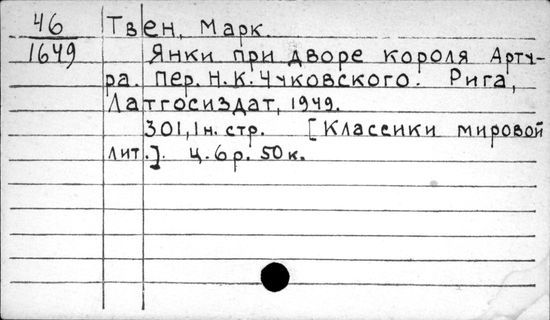 46 Твен, Марк.
1649 Янки при дворе короля Арту-
ра. Пер. Н.К. Чуковского. Рига,
Латгосиздат, 1949.
301,1 н. стр. [Классики мировой
лит.]. ц. 6 р. 50 к.